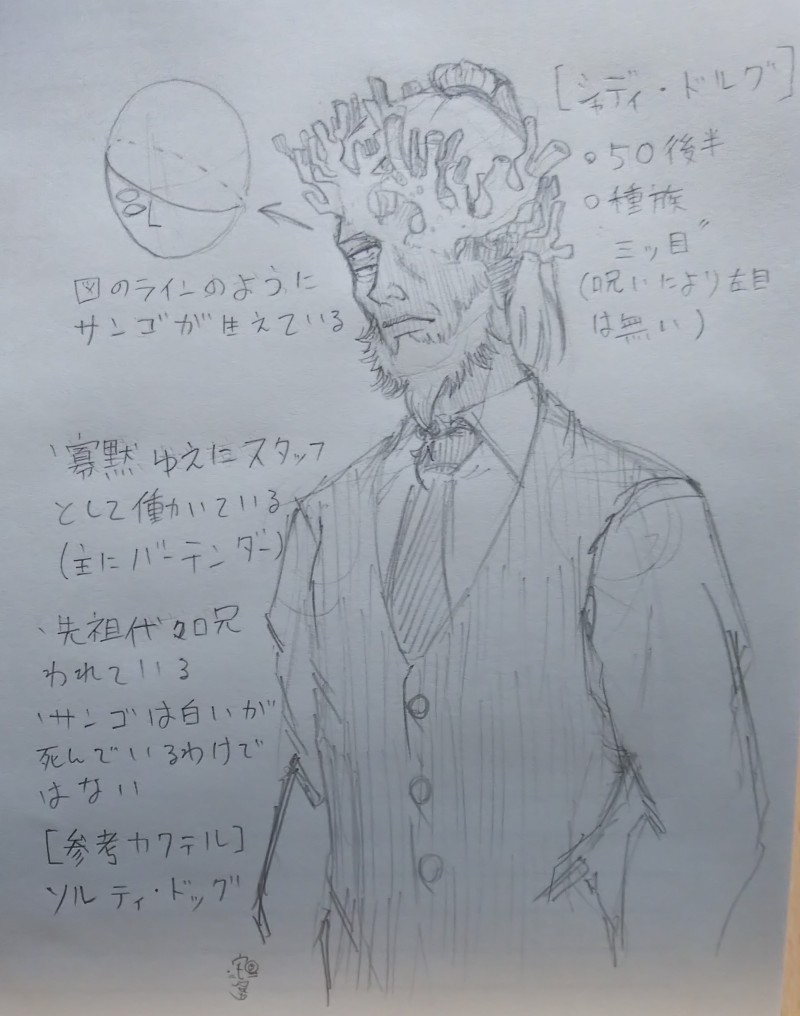 [シャディ・ドルグ]
○50後半
○種族
"三ッ目"
(呪いにより左目
は無い)
図のラインのように
サンゴが生えている
、寡黙ゆえにスタッフ
として働いている
(主にバーテンダー)
、先祖代々呪
われている
、サンゴは白いが
死んでいるわけで
はない
[参考カクテル]
ソルティ・ドッグ